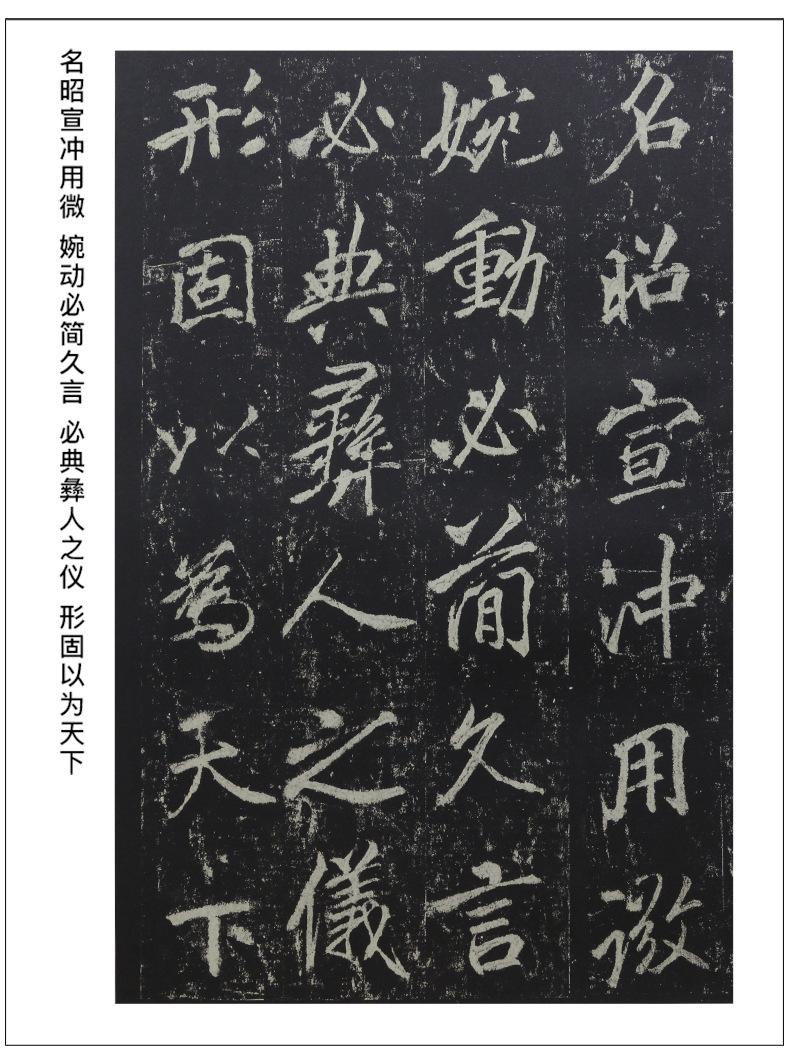 名昭宣冲用微
婉動必簡久言
必典彝人之儀
形固以為天下
名昭宣冲用微 婉动必简久言 必典彝人之仪 形固以为天下